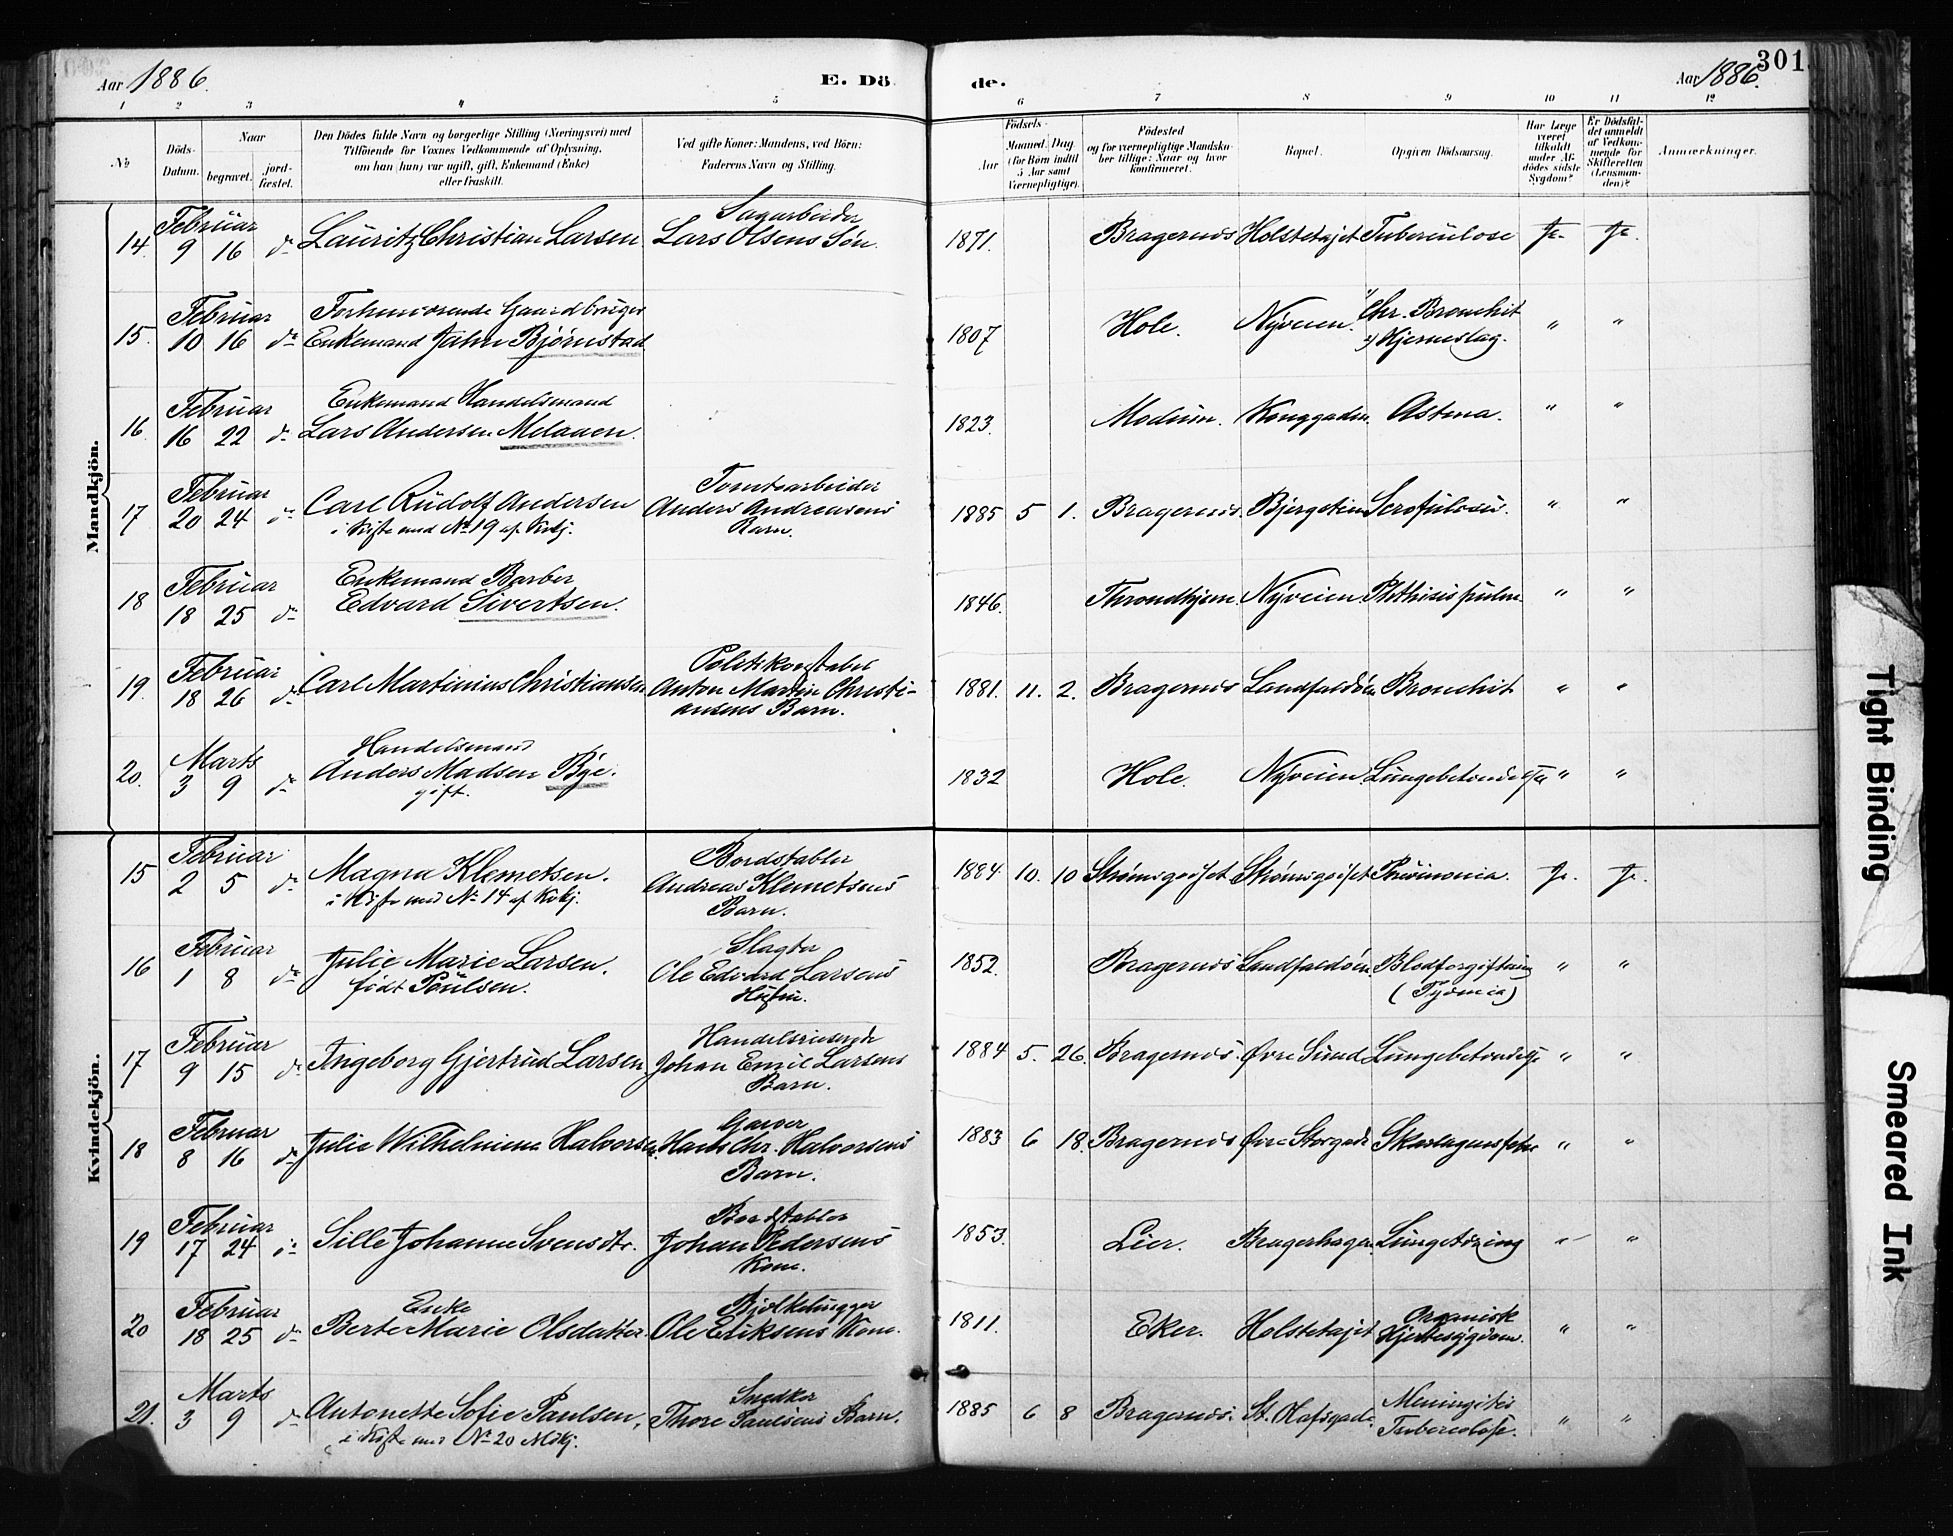 Aar 1886.
E. Dö
de.
Aar 1886.
301
1 2 3 4 5 6 7 8 9 10 11 12
No
Döds-Datum.
Naar
begravet.
jord-fæstet.
Den Dödes fulde Navn og borgerlige Stilling (Næringsvei) med
Tilföiende for Voxnes Vedkommende af Oplysning,
om han (hun) var ugift, gift, Enkemand (Enke)
eller fraskilt.
Ved gifte Koner: Mandens, ved Börn:
Faderens Navn og Stilling.
Födsels-
Aar
Maaned. Dag.
(for Börn indtil
5 Aar samt
Værnepligtige).
Födested
og for værnepligtige Mandskaber tillige: Naar og hvor
konfirmeret.
Bopæl.
Opgiven Dödsaarsag.
Har Læge
været
tilkaldt
under Afdödes sidste
Sygdom?
Er Dödsfaldet anmeldt
af Vedkommende for
Skifteretten
(Lensmanden)?
Anmærkninger.
Mandkjön.
14. Februar 9 16 do Lauritz Christian Larsen Sagarbeider Lars Olsens Søn. 1871. Bragernes Holstetøjet Tuberculose Ja. Ja.
15. Februar 10 16 do Forhenværende Gaardbruger
Enkemand Jahn Bjørnstad 1807 Hole. Nyveien. 1) Chr. Bronchit
2) Hjerneslag. " "
16. Februar 16 22 do Enkemand Handelsmand
Lars Andersen Melaaen. 1823. Modum. Konggaden. Astma. " "
17 Februar 20 24 do Carl Rudolf Andersen
i Kiste med No 19 af Kvkj.
Tomtearbeider
Anders Andreasens
Barn. 1885 5 1. Bragernes. Bjergstien Scrofulosis. " "
18 Februar 18 25 do Enkemand Barber
Edvard Sivertsen. 1846. Throndhjem. Nyveien. Phthisis pulm. " "
19. Februar 18 26 do Carl Martinius Christiansen
Politikonstabel
Anton Martin Christi-
ansens Barn. 1881. 11. 2. Bragernes Landfaldøen Bronchit " "
20. Marts 3 9 do Handelsmand
Anders Madsen Bye.
gift. 1832 Hole. Nyveien Lungebetændelse " "
Kvindekjön.
15 Februar 2 5 do Magna Klemetsen.
i Kiste med No 14 af Kvkj.
Bordstabler
Andreas Klemetsens
Barn. 1884 10. 10 Strømsgodset Strømsgodset Pneumonia. Ja. Ja.
16 Februar 1 8 do Julie Marie Larsen.
født Poulsen.
Slagter
Ole Edvard Larsens
Hustru. 1852. Bragernes Landfaldøen. Blodforgiftning
(Pyæmia) " "
17 Februar 9 15 do Ingeborg Gjertrud Larsen.
Handelsreisende
Johan Emil Larsens
Barn. 1884 5. 26. Bragernes. Øvre Sund Lungebetændelse " "
18 Februar 8 16 do Julie Wilhelmine Halvorsen.
Garver
Hans Chr. Halvorsens
Barn. 1883 6 18. Bragernes Øvre Storgade Skarlagensfeber " "
19 Februar 17 24 do Sille Johanne Svensdtr.
Bordstabler
Johan Pedersens
Kone. 1853. Lier. Bragerhagen Lungetæring " "
20 Februar 18 25 do Enke
Berte Marie Olsdatter.
Bjelkehugger
Ole Eriksens Kone. 1811. Eker. Holstetøjet Organisk
Hjertesygdom. " "
21. Marts 3 9 do Antonette Sofie Paulsen.
i Kiste med No 20 Mdkj.
Snedker
Thore Paulsens Barn. 1885 6 8 Bragernes. St. Olafsgade. Meningitis
Tuberculose. " "
Tight Binding
Smeared Ink